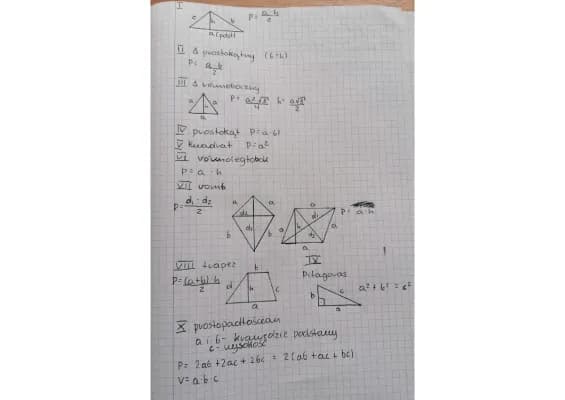 I
c h b
a (podst)
P = a·h/2
II Δ prostokątny (b=h)
P = a·b/2
III Δ równoboczny
a a
a
P = a²√3/4 h = a√3/2
IV prostokąt P=a·b
V kwadrat P=a²
VI równoległobok
P = a · h
VII romb
P = d₁ · d₂/2
a a
d₂
d₁
b b
a
a h d₁ a
d₂
a
P = a·h
VIII trapez
P = (a+b)·h/2
b
d h c
a
IX
Pitagoras
b c
a
a² + b² = c²
X prostopadłościan
a i b - krawędzie podstawy
c - wysokość
P = 2ab + 2ac + 2bc = 2(ab + ac + bc)
V = a·b·c